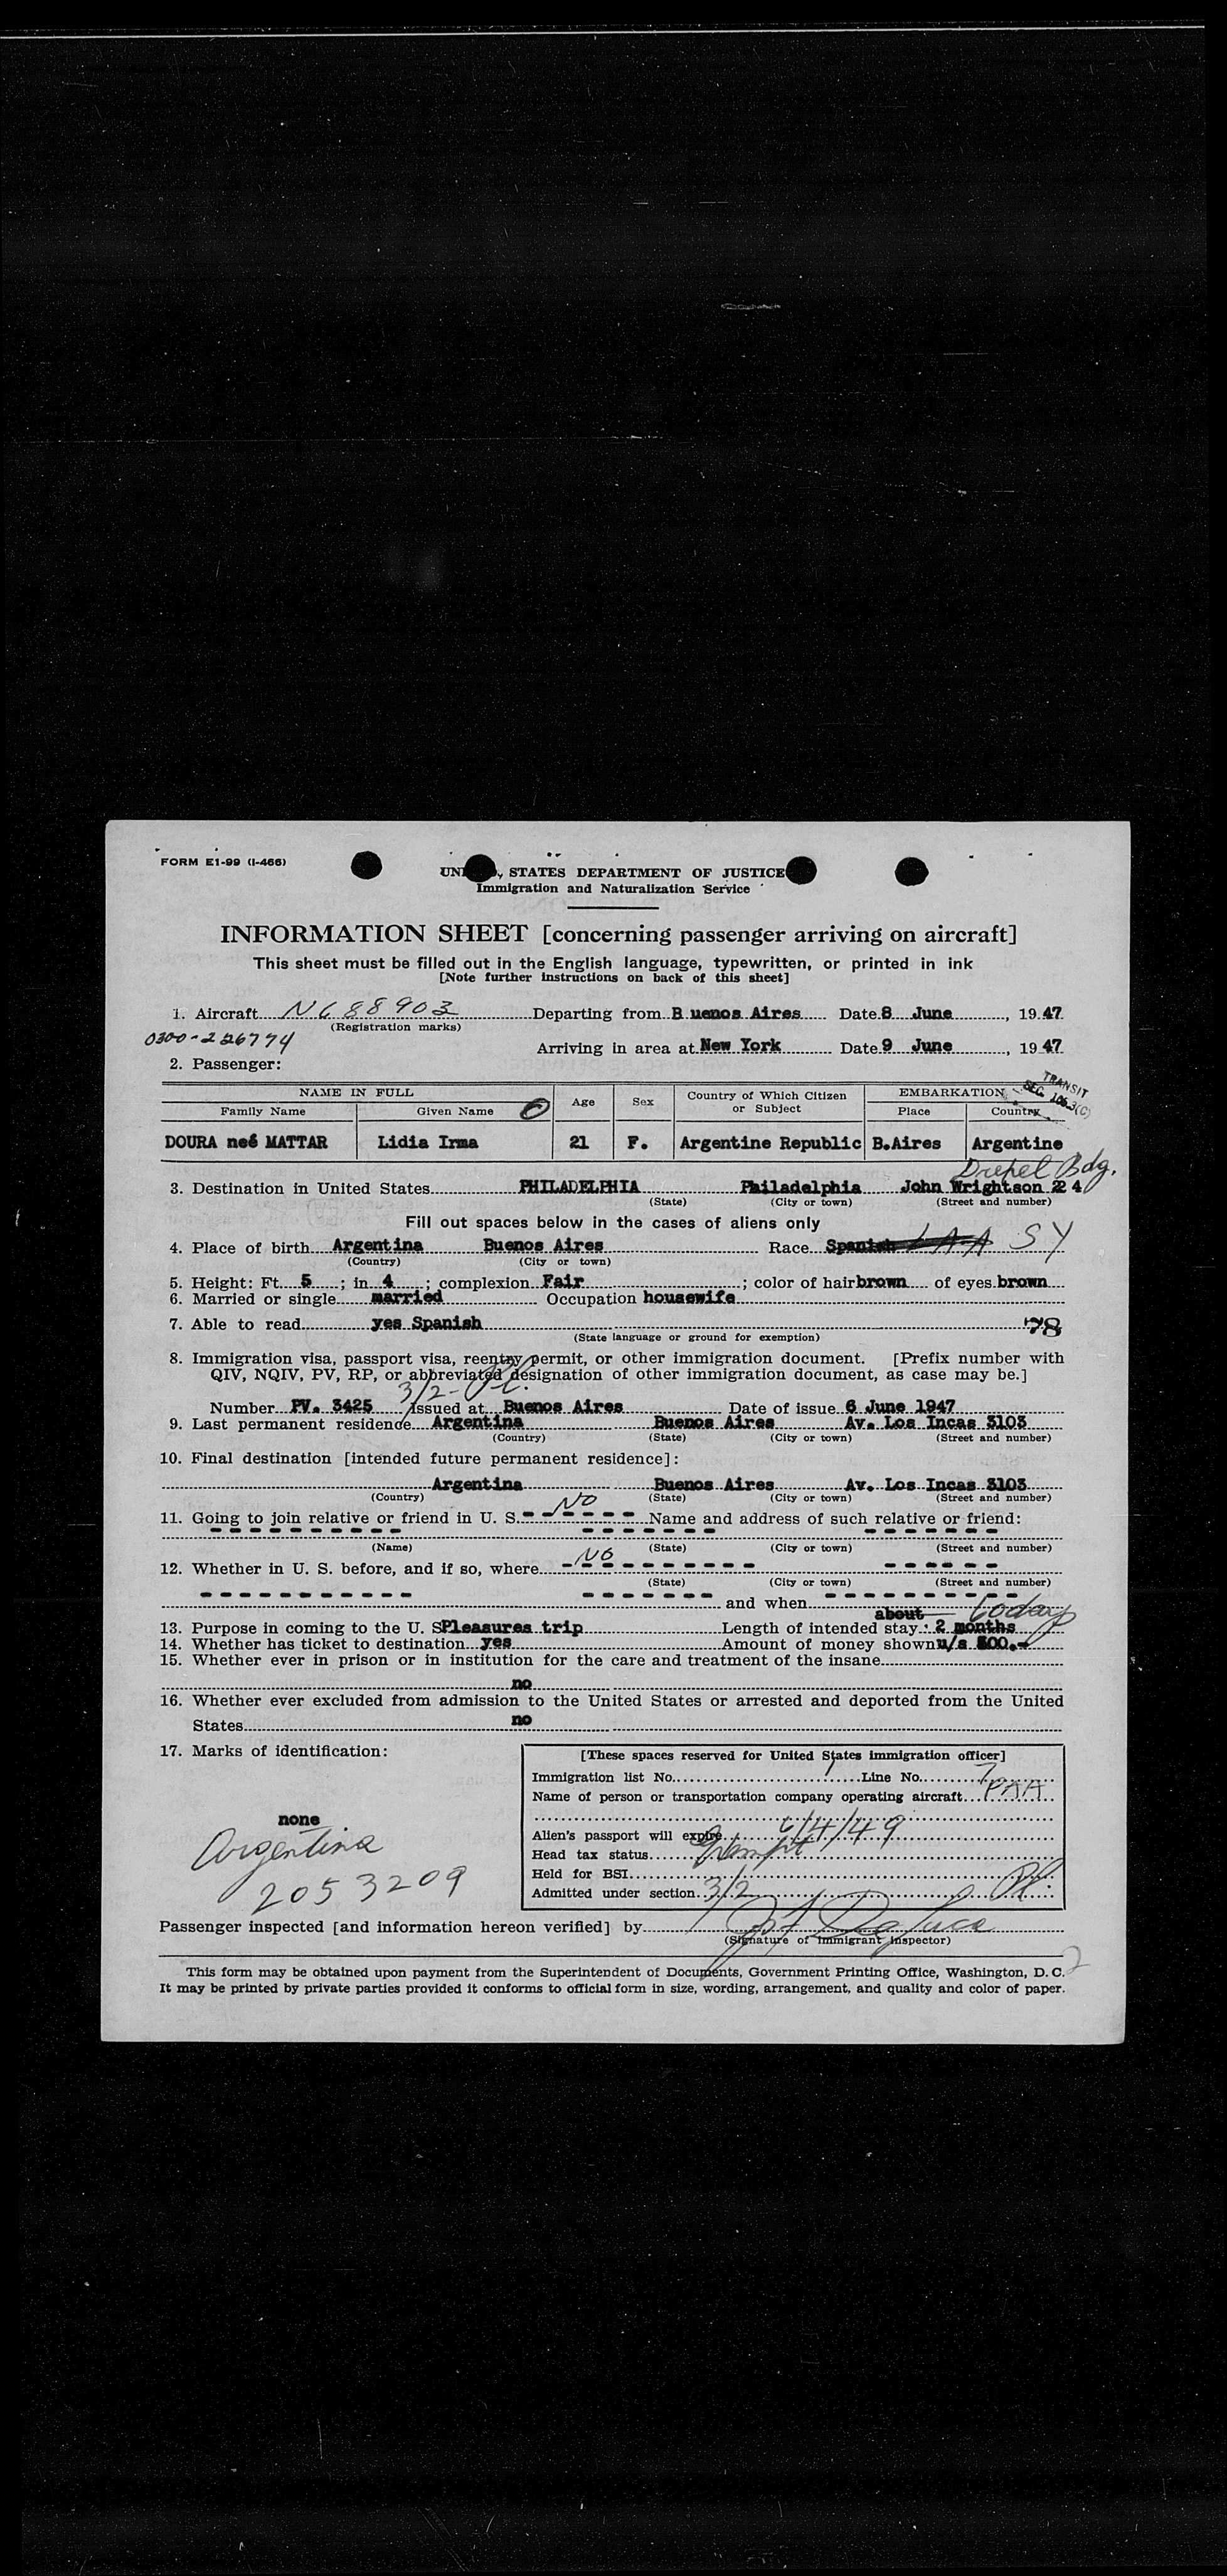 FORM E1-99 (I-466)
UNI , STATES DEPARTMENT OF JUSTICE
Immigration and Naturalization Service
INFORMATION SHEET [concerning passenger arriving on aircraft]
This sheet must be filled out in the English language, typewritten, or printed in ink
[Note further instructions on back of this sheet]
1. Aircraft NC 88903 Departing from B uenos Aires Date 8 June , 19 47
(Registration marks)
0300-226774
Arriving in area at New York Date 9 June , 19 47
2. Passenger:
TRANSIT
SEC. 106.3(C)
NAME IN FULL Age Sex Country of Which Citizen or Subject EMBARKATION
Family Name Given Name Place Country
DOURA neé MATTAR Lidia Irma 21 F. Argentine Republic B.Aires Argentine
Drexel Bdg.
3. Destination in United States PHILADELPHIA Philadelphia John Wrightson 24
(State) (City or town) (Street and number)
Fill out spaces below in the cases of aliens only
4. Place of birth Argentina Buenos Aires Race Spanish LAA SY
(Country) (City or town)
5. Height: Ft. 5 ; in 4 ; complexion Fair ; color of hair brown of eyes brown
6. Married or single married Occupation housewife
7. Able to read yes Spanish 78
(State language or ground for exemption)
8. Immigration visa, passport visa, reentry permit, or other immigration document. [Prefix number with
QIV, NQIV, PV, RP, or abbreviated designation of other immigration document, as case may be.]
3/2-
Number PV. 3425 Issued at Buenos Aires Date of issue 6 June 1947
9. Last permanent residence Argentina Buenos Aires Av. Los Incas 3103
(Country) (State) (City or town) (Street and number)
10. Final destination [intended future permanent residence]:
Argentina Buenos Aires Av. Los Incas 3103
(Country) (State) (City or town) (Street and number)
11. Going to join relative or friend in U. S. NO Name and address of such relative or friend:
(Name) (State) (City or town) (Street and number)
12. Whether in U. S. before, and if so, where NO
(State) (City or town) (Street and number)
and when
about today
13. Purpose in coming to the U. S. Pleasures trip Length of intended stay 2 months
14. Whether has ticket to destination yes Amount of money shown u/s 500.-
15. Whether ever in prison or in institution for the care and treatment of the insane
no
16. Whether ever excluded from admission to the United States or arrested and deported from the United
States no
17. Marks of identification:
none
Argentina
2053209
[These spaces reserved for United States immigration officer]
Immigration list No. 1 Line No. 7
Name of person or transportation company operating aircraft PAA
Alien's passport will expire 6/4/49
Head tax status Exempt
Held for BSI
Admitted under section 3/2
Passenger inspected [and information hereon verified] by
(Signature of immigrant inspector)
2
This form may be obtained upon payment from the Superintendent of Documents, Government Printing Office, Washington, D. C.
It may be printed by private parties provided it conforms to official form in size, wording, arrangement, and quality and color of paper.